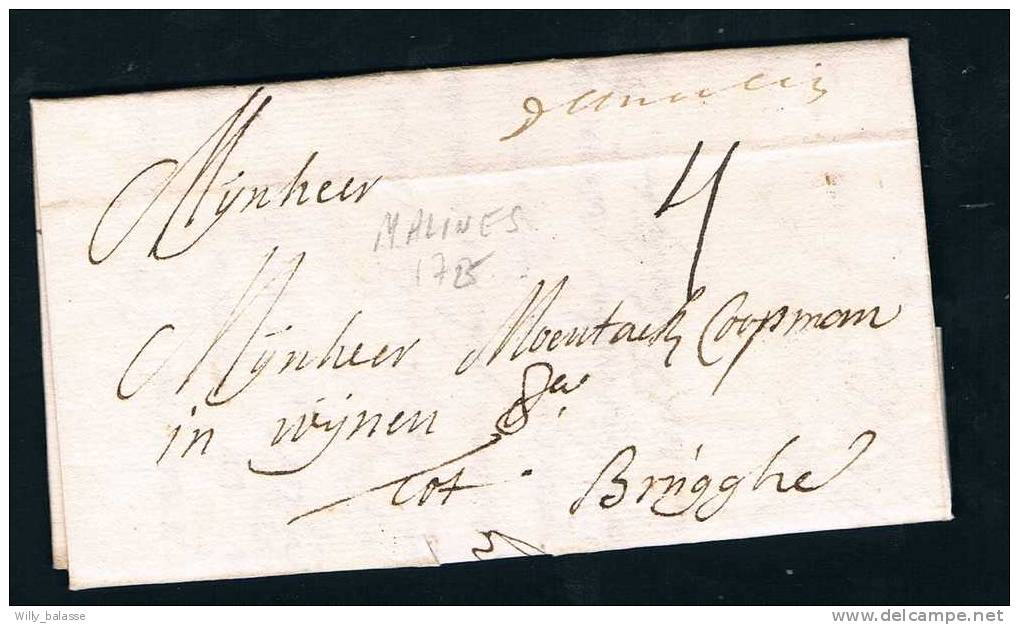 demalin
4
Mÿnheer
MALINES
1725
Mÿnheer Moentack Coopman
in wÿnen &a.
tot Brugghe
Willy_balasse
delcampe.net